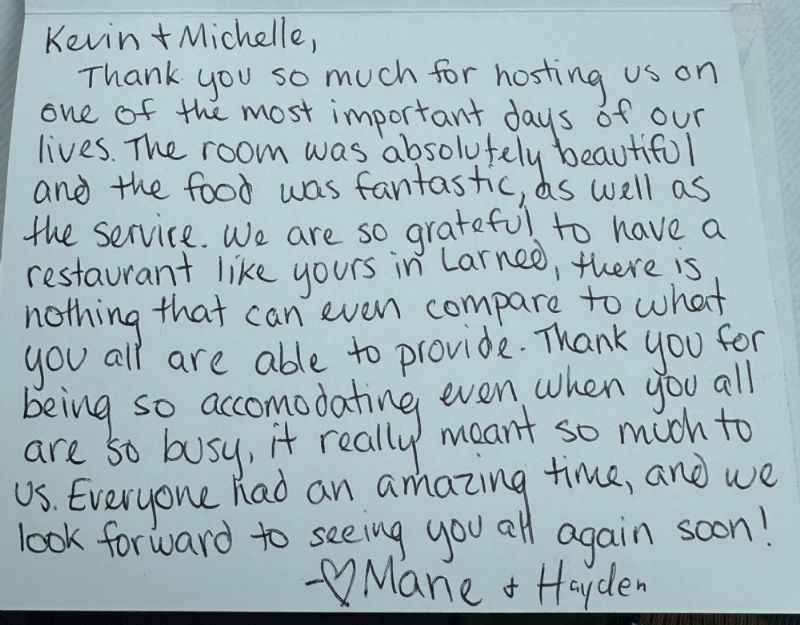 Kevin + Michelle,
Thank you so much for hosting us on
one of the most important days of our
lives. The room was absolutely beautiful
and the food was fantastic, as well as
the service. We are so grateful to have a
restaurant like yours in Larned, there is
nothing that can even compare to what
you all are able to provide. Thank you for
being so accomodating even when you all
are so busy, it really meant so much to
us. Everyone had an amazing time, and we
look forward to seeing you all again soon!
-♡ Marie + Hayden